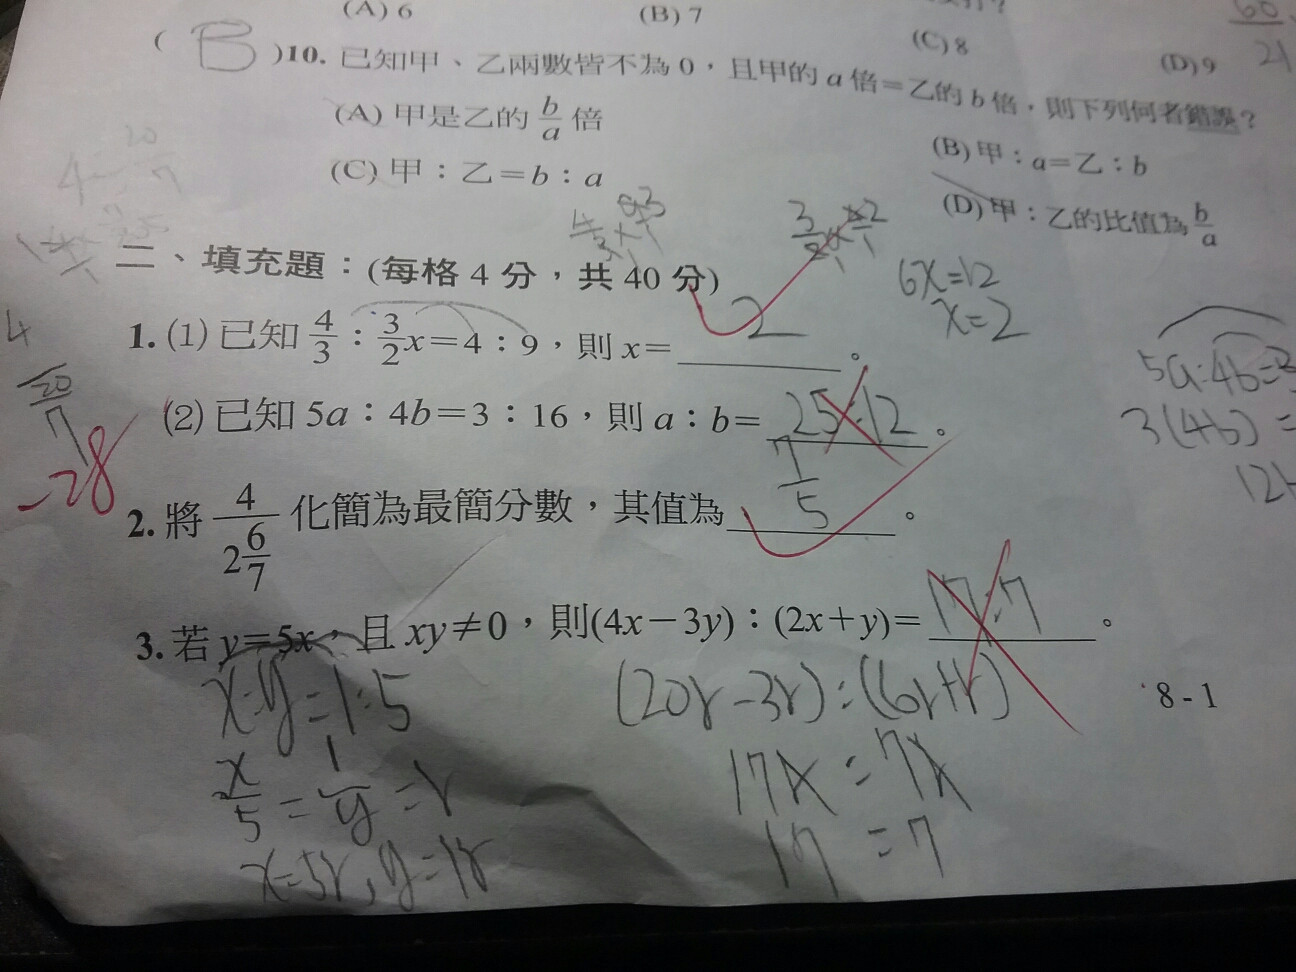 (A) 6 (B) 7 (C) 8 (D) 9
60
21
( B )10. 已知甲、乙兩數皆不為 0，且甲的 a 倍＝乙的 b 倍，則下列何者錯誤？
(A) 甲是乙的 b/a 倍 (B) 甲：a＝乙：b
(C) 甲：乙＝b：a (D) 甲：乙的比值為 b/a
6x=12
x=2
二、填充題：(每格 4 分，共 40 分)
1. (1) 已知 4/3：3/2 x＝4：9，則 x＝ 2 。
(2) 已知 5a：4b＝3：16，則 a：b＝ 25:12 。
5a:4b=3
3(4b)=
4
20
7
-28
2. 將 4/(2 6/7) 化簡為最簡分數，其值為 7/5 。
3. 若 y＝5x，且 xy≠0，則(4x－3y)：(2x＋y)＝ 17:7 。
x:y=1:5
(20r-3r):(6r+r)
8 - 1
x/5=1/y=r
17r:7r
x=5r,y=1r
17:7